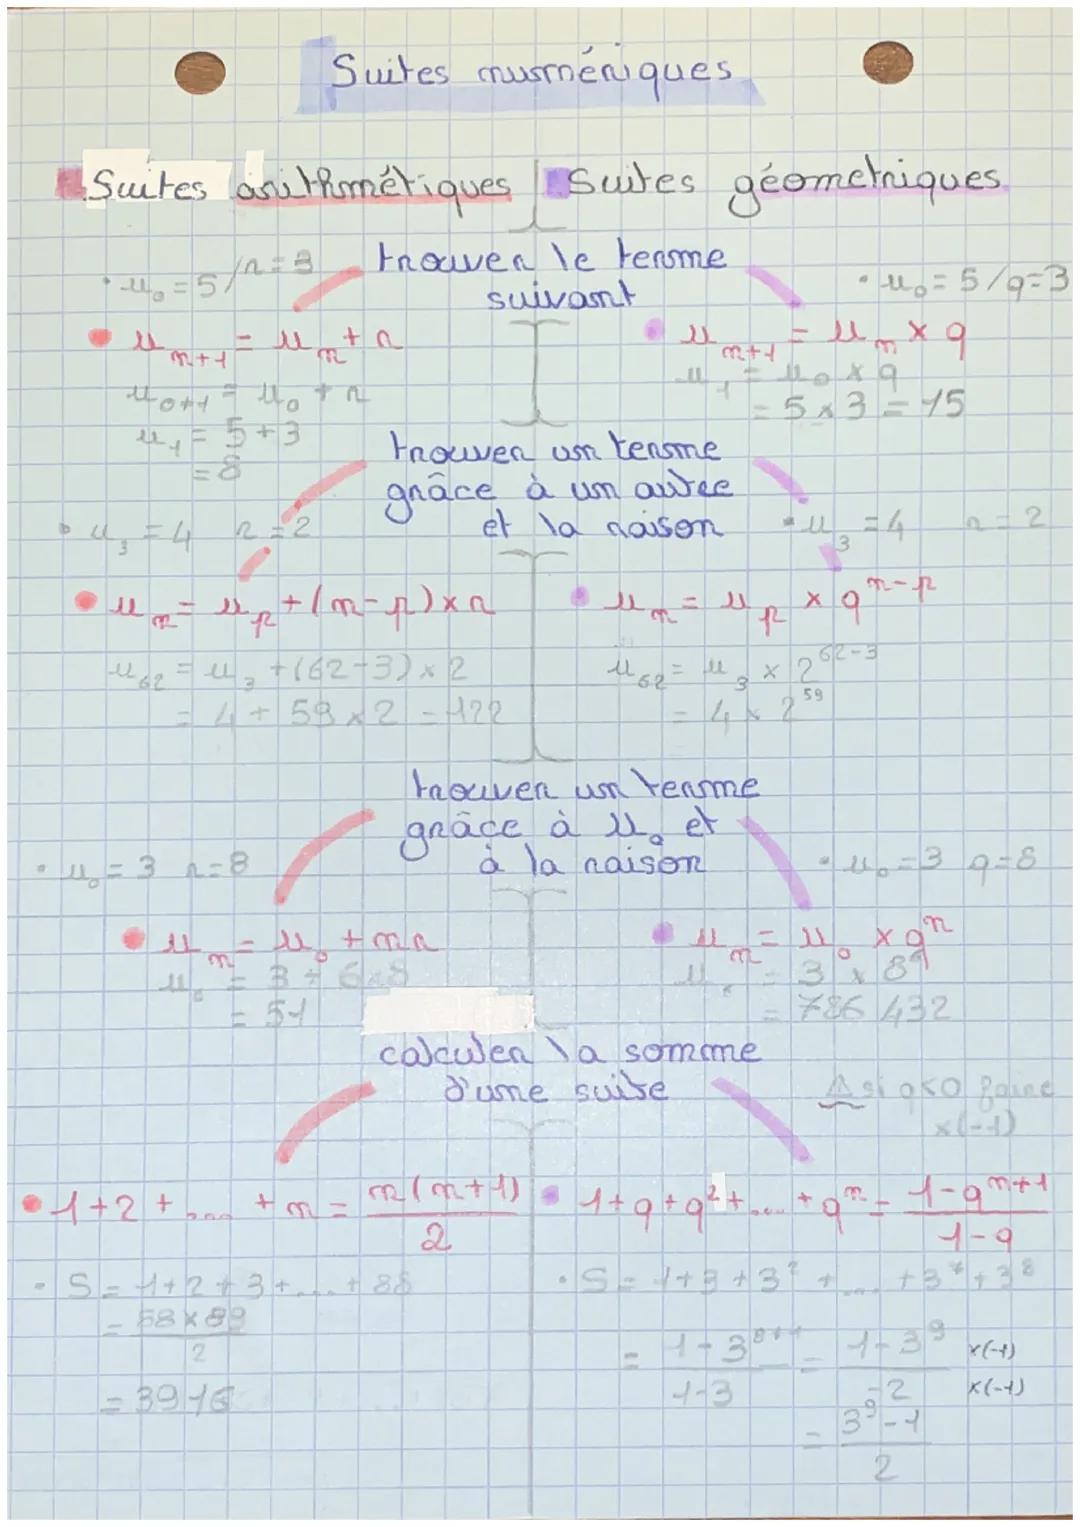 Suites numériques
Suites arithmétiques
Suites géometriques
trouver le terme
suivant
• u₀ = 5 / r = 3
• uₙ₊₁ = uₙ + r
u₀₊₁ = u₀ + r
u₁ = 5 + 3
= 8
• u₀ = 5 / q = 3
• uₙ₊₁ = uₙ × q
u₁ = u₀ × q
= 5 × 3 = 15
trouver un terme
grâce à un autre
et la raison
• u₃ = 4 r = 2
• uₙ = uₚ + (n-p) × r
u₆₂ = u₃ + (62-3) × 2
= 4 + 59 × 2 = 122
• u₃ = 4 r = 2
• uₙ = uₚ × qⁿ⁻ᵖ
u₆₂ = u₃ × 2⁶²⁻³
= 4 × 2⁵⁹
trouver un terme
grâce à u₀ et
à la raison
• u₀ = 3 r = 8
• uₙ = u₀ + nr
u₆ = 3 + 6×8
= 51
• u₀ = 3 q = 8
• uₙ = u₀ × qⁿ
u₆ = 3 × 8
= 786 432
calculer la somme
d'une suite
⚠ si q<0 faire
×(-1)
• 1+2+.... +n = n(n+1)/2
• S = 1+2+3+....+88
= 88×89/2
= 3916
• 1+q+q²+....+qⁿ = 1-qⁿ⁺¹/1-q
• S = 1+3+3²+....+3⁷+3⁸
= 1-3⁸⁺¹/1-3 = 1-3⁹/-2 ×(-1) ×(-1)
= 3⁹-1/2